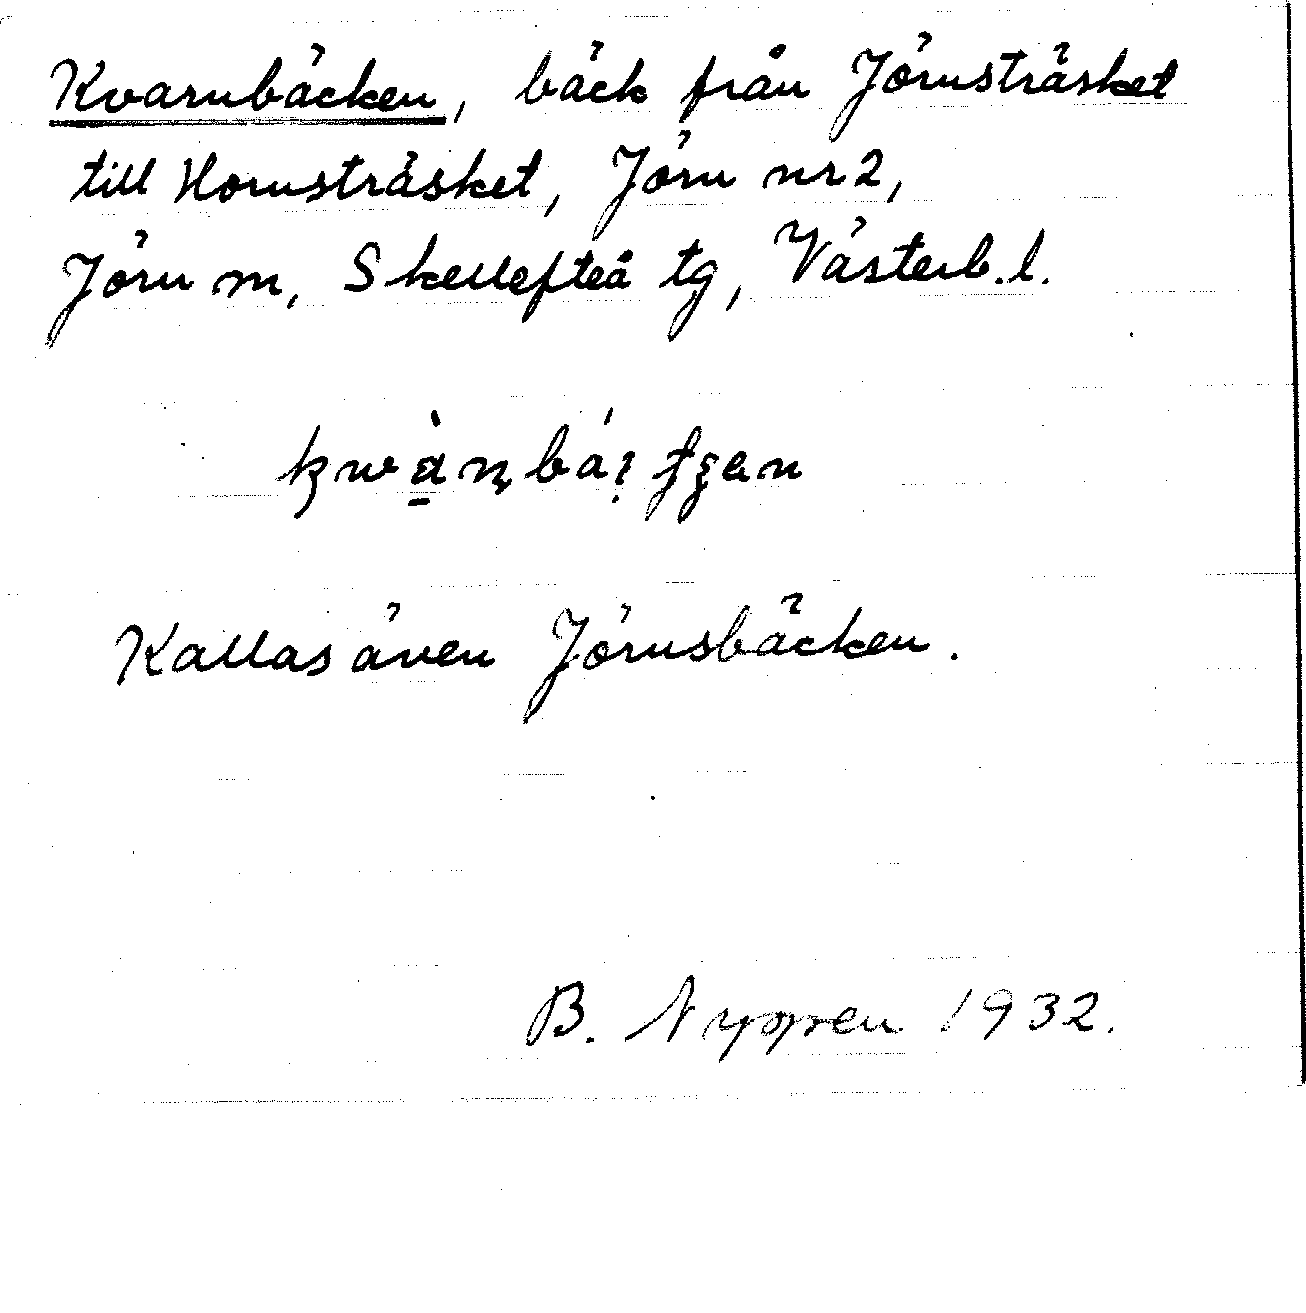 Kvarnbäcken, bäck från Jörnsträsket
till Hornsträsket, Jörn nr 2,
Jörn sn, Skellefteå tg, Västerb. l.
Kallas även Jörnsbäcken.
B. Nygren 1932.